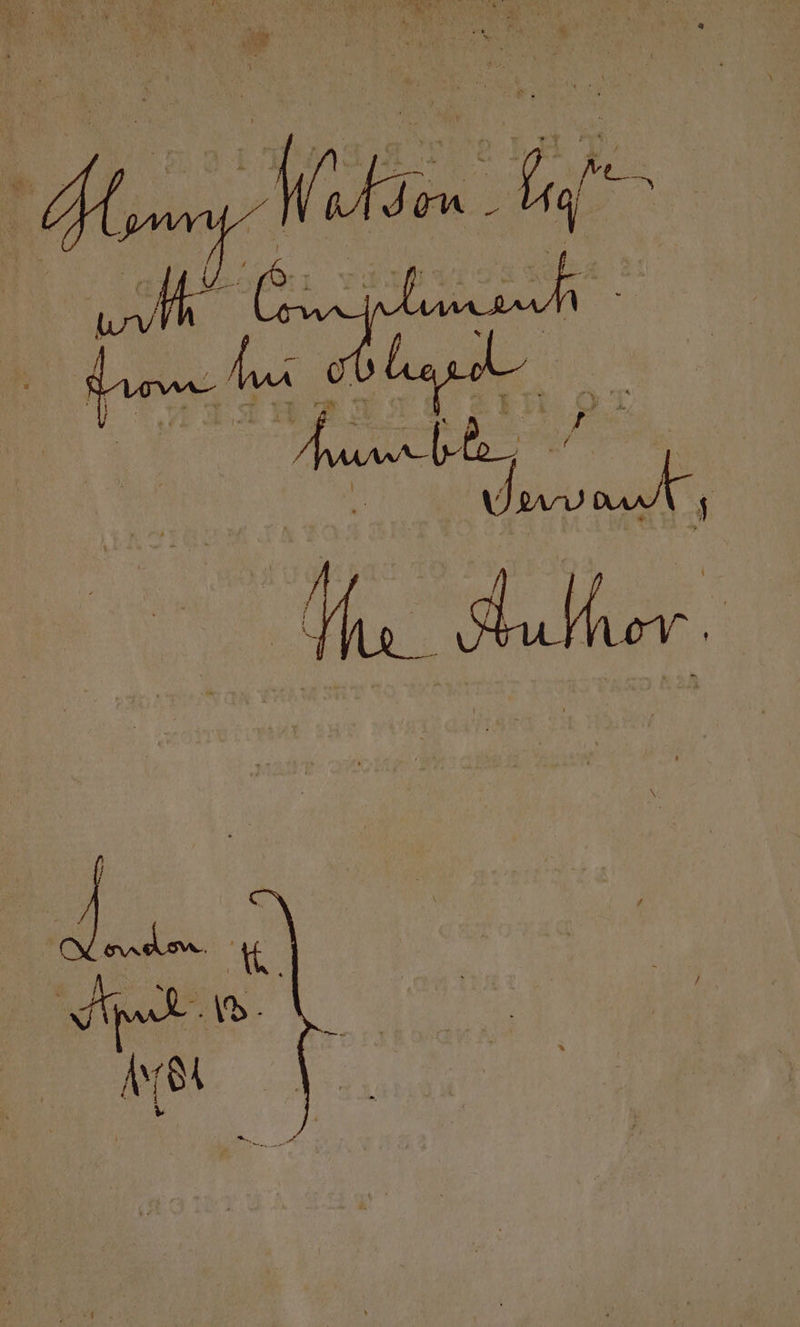 Henry Watson Esqre
with Compliments
from his obliged
humble
Servant,
The Author.
London
April 13th
1781